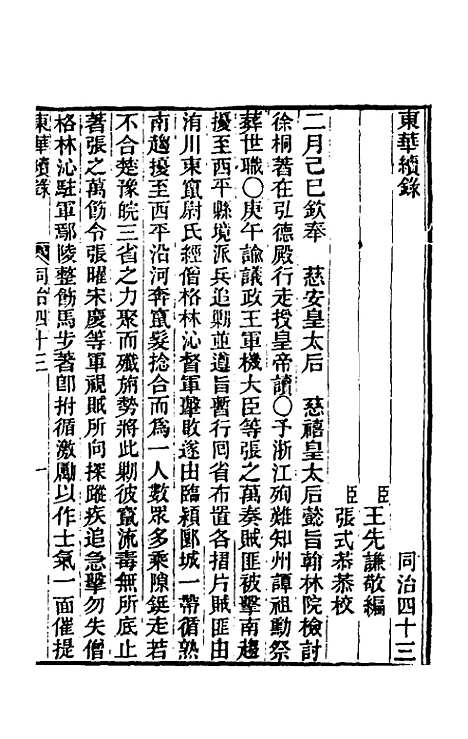 東華續錄 同治四十三
臣王先謙敬編
臣張式恭恭校
二月己巳欽奉 慈安皇太后 慈禧皇太后懿旨翰林院檢討
徐桐著在弘德殿行走授皇帝讀〇予浙江殉難知州譚祖勳祭
葬世職〇庚午諭議政王軍機大臣等張之萬奏賊匪被擊南趨
擾至西平縣境派兵追剿並遵旨暫行囘省布置各摺片賊匪由
洧川東竄尉氏經僧格林沁督軍擊敗遂由臨潁郾城一帶循熟
南趨擾至西平沿河奔竄髮捻合而為一人數眾多乘隙鋌走若
不合楚豫皖三省之力聚而殲旃勢將此剿彼竄流毒無所底止
著張之萬飭令張曜宋慶等軍視賊所向探蹤疾追急擊勿失僧
格林沁駐軍鄢陵整飭馬步著卽拊循激勵以作士氣一面催提
東華續錄 同治四十三 一